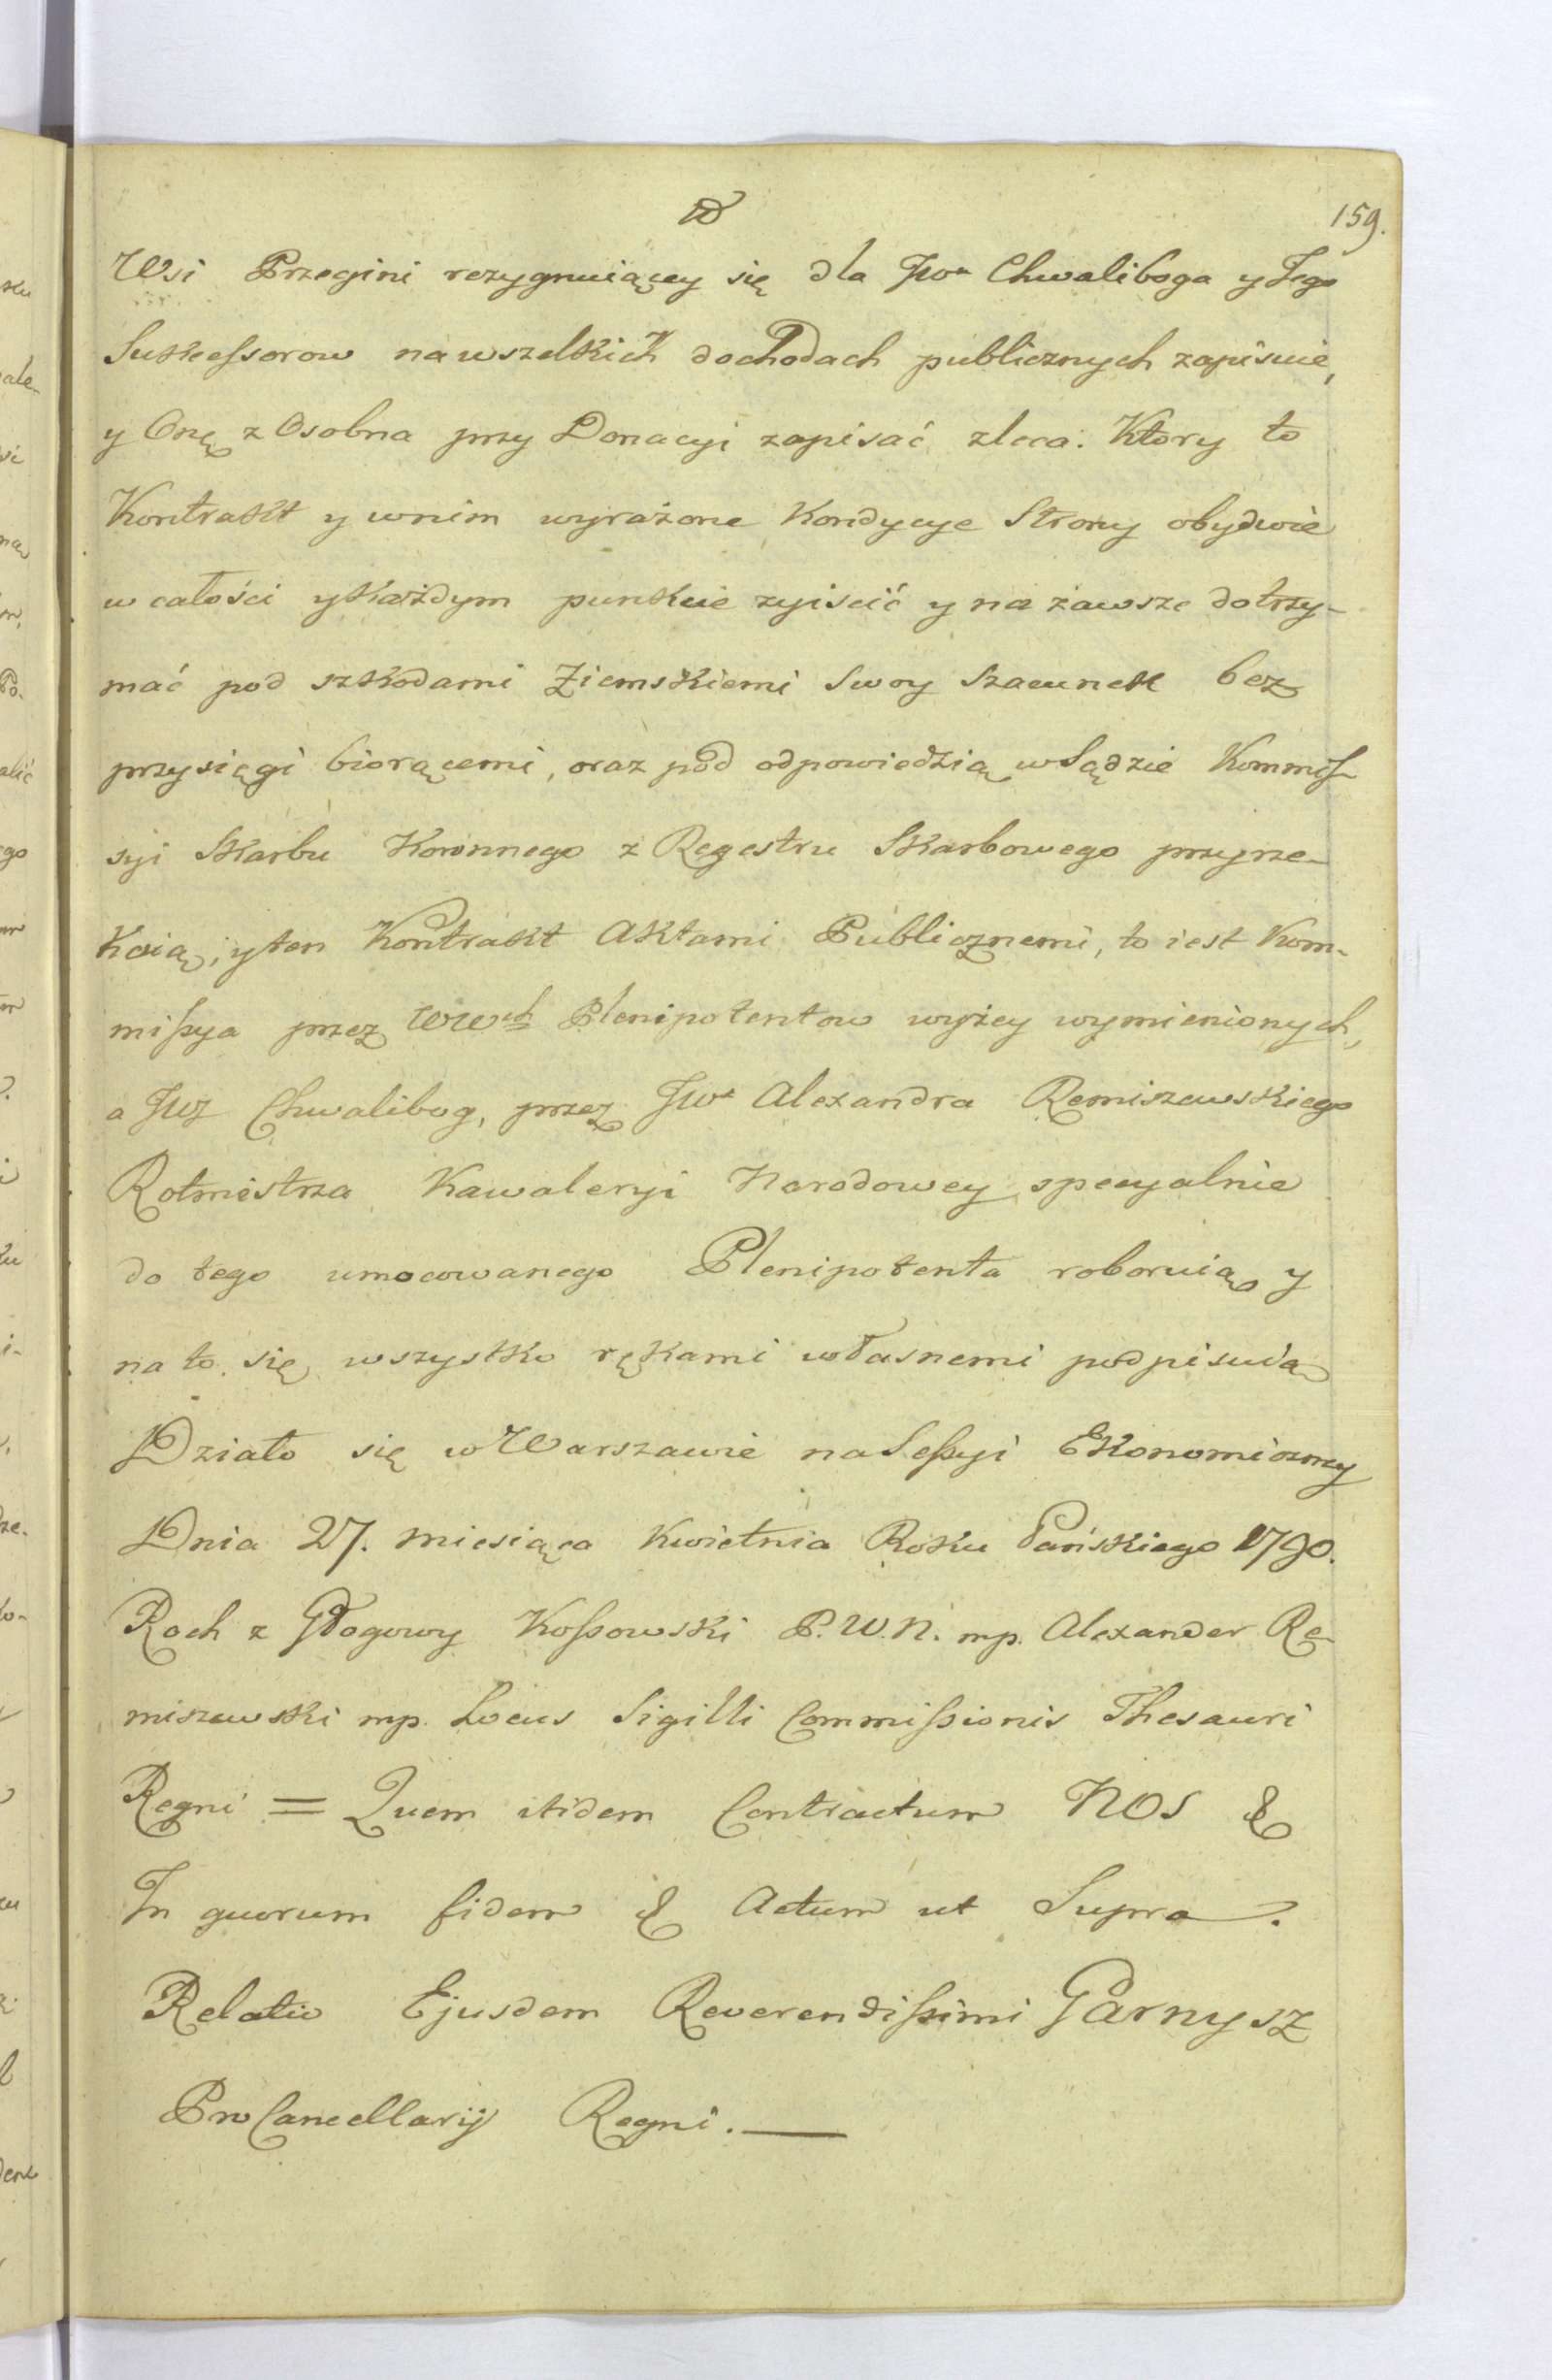 159.
Wsi Przegini rezygnuiącey się dla JWo Chwaliboga y Jego
Sukcessorow na wszelkich dochodach publicznych zapisuie,
y Onę z Osobna przy Donacyi zapisać zleca. Ktory to
Kontrakt y w nim wyrażone Kondycye Strony obydwie
w całości y każdym punkcie zyiścić y na zawsze dotrzy-
mać pod szkodami Ziemskiemi Swoy Szacunek bez
przysięgi biorącemi, oraz pod odpowiedzią w Sądzie Kommis-
syi Skarbu Koronnego z Regestru Skarbowego przyrze-
kaią, y ten Kontrakt Aktami Publicznemi, to iest Kom-
missya przez WWch Plenipotentow wyżey wymienionych,
a JWJ Chwalibog, przez JWo Alexandra Remiszewskiego
Rotmistrza Kawaleryi Narodowey specyalnie
do tego umocowanego Plenipotenta roboruią y
na to się wszystko rękami własnemi podpisuią
Działo się w Warszawie na Sessyi Ekonomiczney
Dnia 27. Miesiąca Kwietnia Roku Pańskiego 1790.
Roch z Głogowy Kossowski P.W.N. mp. Alexander Re-
miszewski mp. Locus Sigilli Commissionis Thesauri
Regni = Quem itidem Contractum NOS &
In quorum fidem & Actum ut Supra.
Relatio Ejusdem Reverendissimi Garnysz
ProCancellarij Regni.